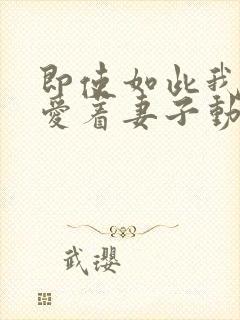 即使如此我
爱着妻子動
武瓔